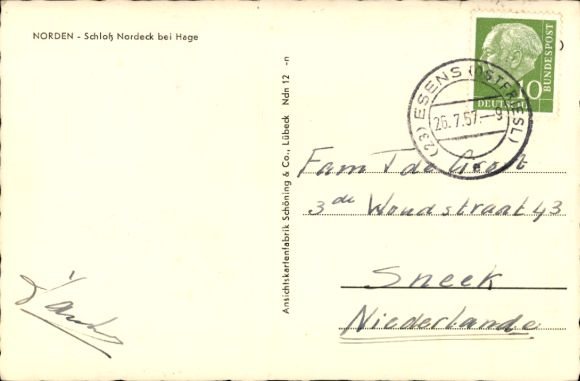 NORDEN - Schloß Nordeck bei Hage
Ansichtskartenfabrik Schöning & Co., Lübeck Ndn 12 -n
10
DEUTSCHE
BUNDESPOST
(23) ESENS (OSTFRIESL)
26.7.57.--9
Fam T de Groot
3de Woudstraat 43
Sneek
Niederlande